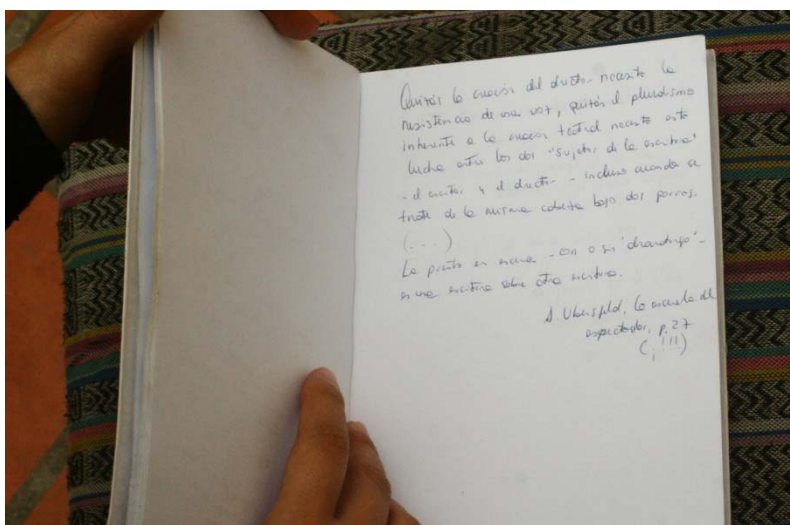 Quizás la creación del director necesita la
resistencia de una voz, quizás el pluralismo
inherente a la creación teatral necesita esta
lucha entre los dos "sujetos de la escritura"
- el escritor y el director - incluso cuando se
trate de la misma cabeza bajo dos gorros.
(...)
La puesta en escena - con o sin "dramaturgo" -
es una escritura sobre otra escritura.
A. Ubersfeld, La escuela del
espectador, p. 27
(¡!!!)